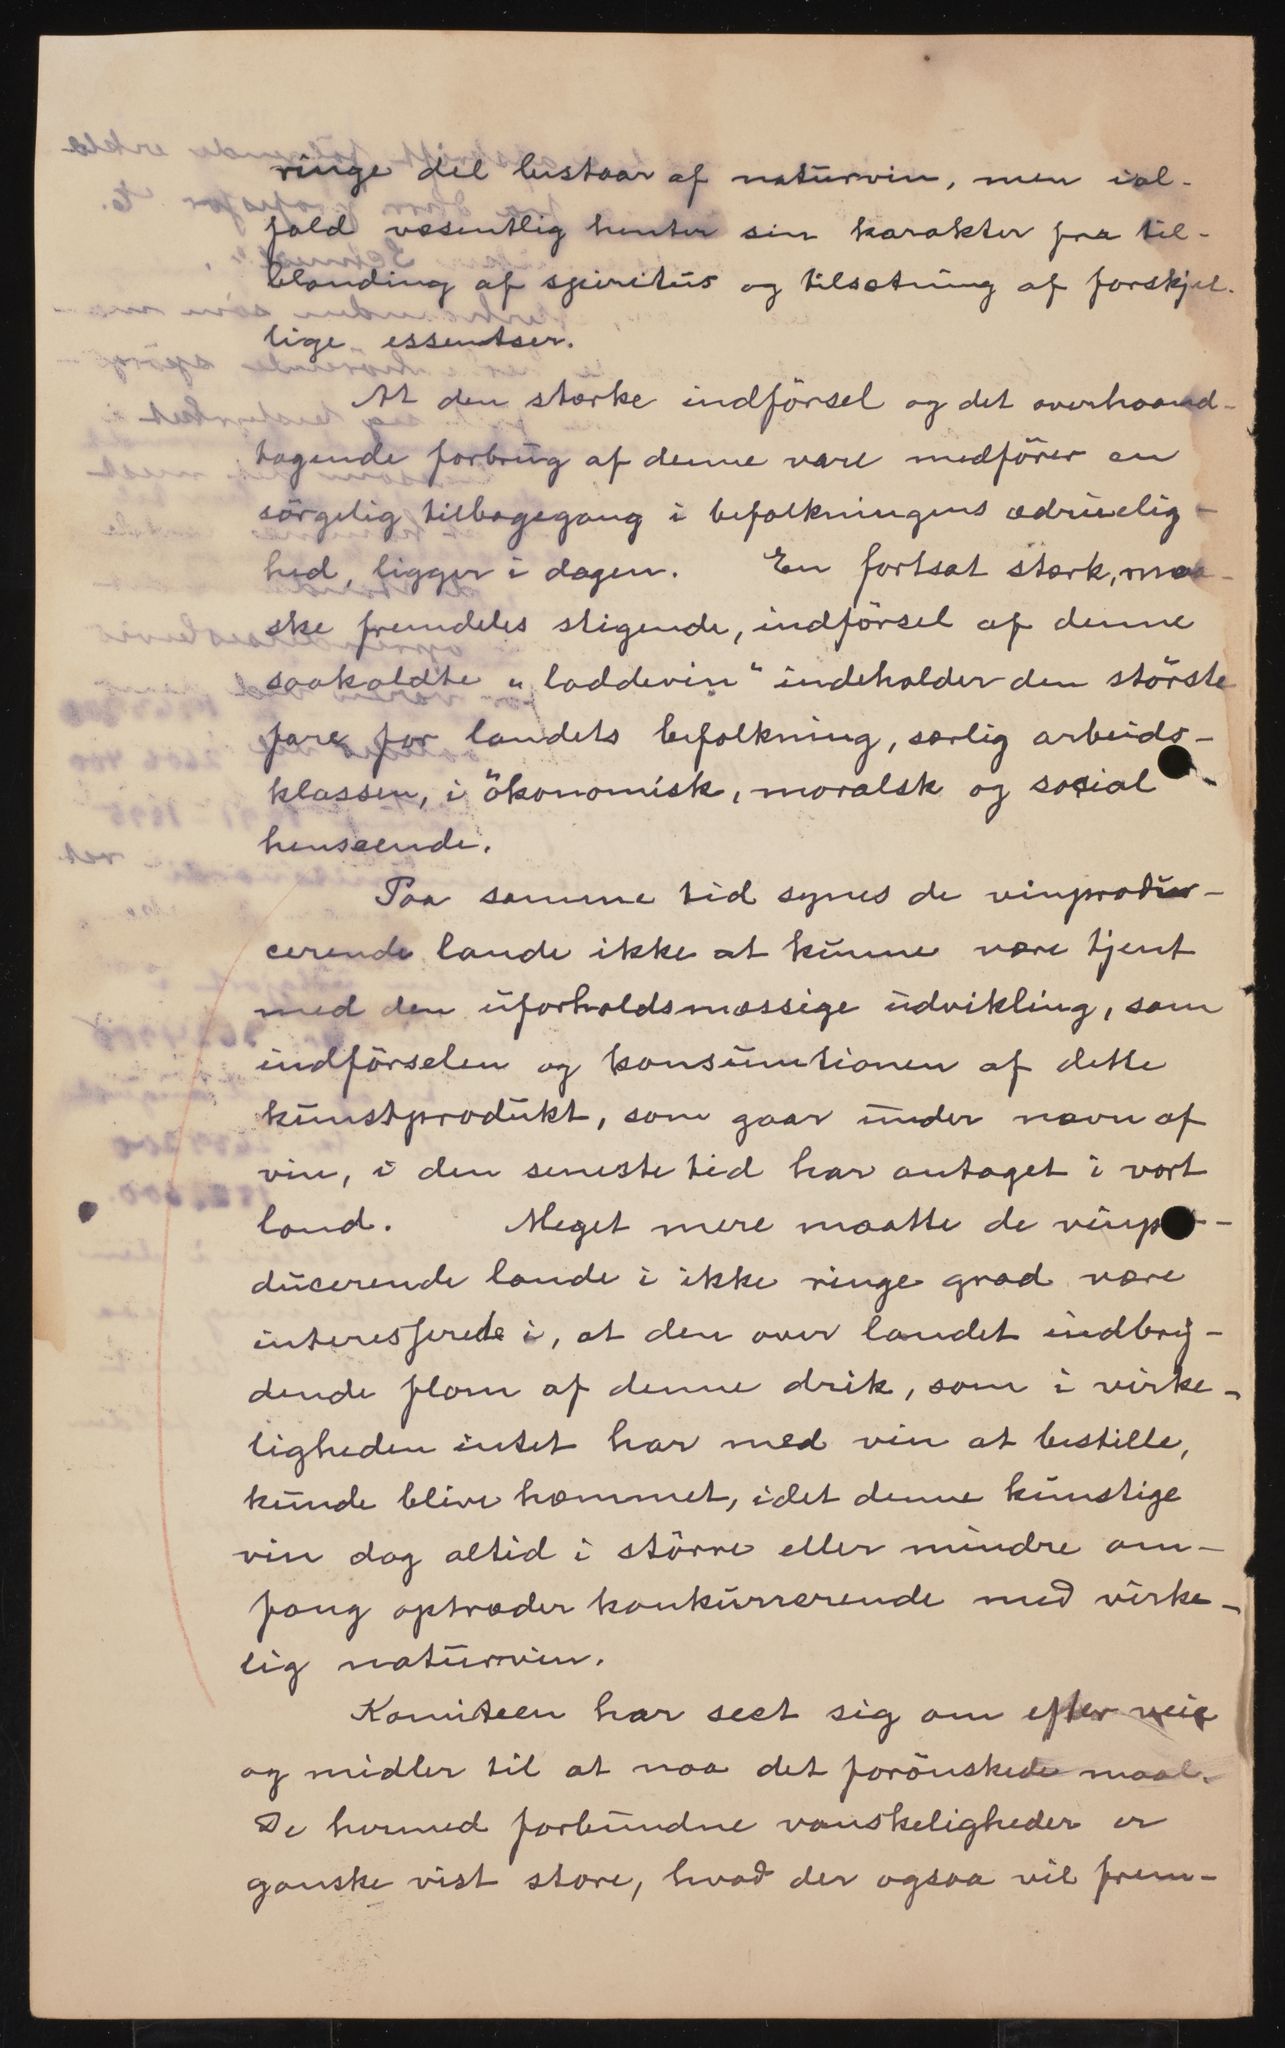 ringe del bestaar af naturvin, men ial-
fald væsentlig henter sin karakter fra til-
blanding af spiritus og tilsætning af forskjel-
lige essentser.
At den stærke indförsel og det overhaand-
tagende forbrug af denne vare medförer en
sörgelig tilbagegang i befolkningens ædruelig-
hed, ligger i dagen. En fortsat stærk, maa-
ske fremdeles stigende, indförsel af denne
saakaldte "laddevin" indeholder den störste
fare for landets befolkning, særlig arbeids-
klassen, i ökonomisk, moralsk og social
henseende.
Paa samme tid synes de vinprodu-
cerende lande ikke at kunne være tjent
med den uforholdsmæssige udvikling, som
indförselen og konsumtionen af dette
kunstprodukt, som gaar under navn af
vin, i den seneste tid har antaget i vort
land. Meget mere maatte de vinpro-
ducerende lande i ikke ringe grad være
interesserede i, at den over landet indbry-
dende flom af denne drik, som i virke-
ligheden intet har med vin at bestille,
kunde blive hæmmet, idet denne kunstige
vin dog altid i större eller mindre om-
fang optræder konkurrerende med virke-
lig naturvin.
Komiteen har seet sig om efter veie
og midler til at naa det forönskede maal.
De hermed forbundne vanskeligheder er
ganske vist store, hvad der ogsaa vil frem-